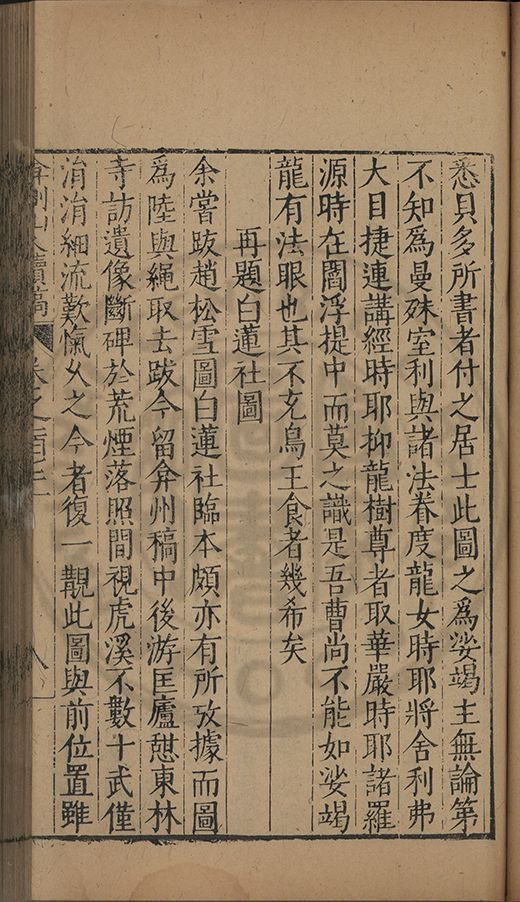 悉貝多所書者付之居士此圖之爲娑竭主無論第
不知爲曼殊室利與諸法眷度龍女時耶將舍利弗
大目捷連講經時耶抑龍樹尊者取華嚴時耶諸羅
源時在閻浮提中而莫之識是吾曹尚不能如娑竭
龍有法眼也其不充鳥王食者幾希矣
再題白蓮社圖
余嘗跋趙松雪圖白蓮社臨本頗亦有所攷據而圖
爲陸與繩取去跋今留弇州稿中後游匡廬憇東林
寺訪遺像斷碑於荒煙落照間視虎溪不數十武僅
涓涓細流歎愾乆之今者復一覩此圖與前位置雖
弇州山人續稿 卷之一百七十一 八